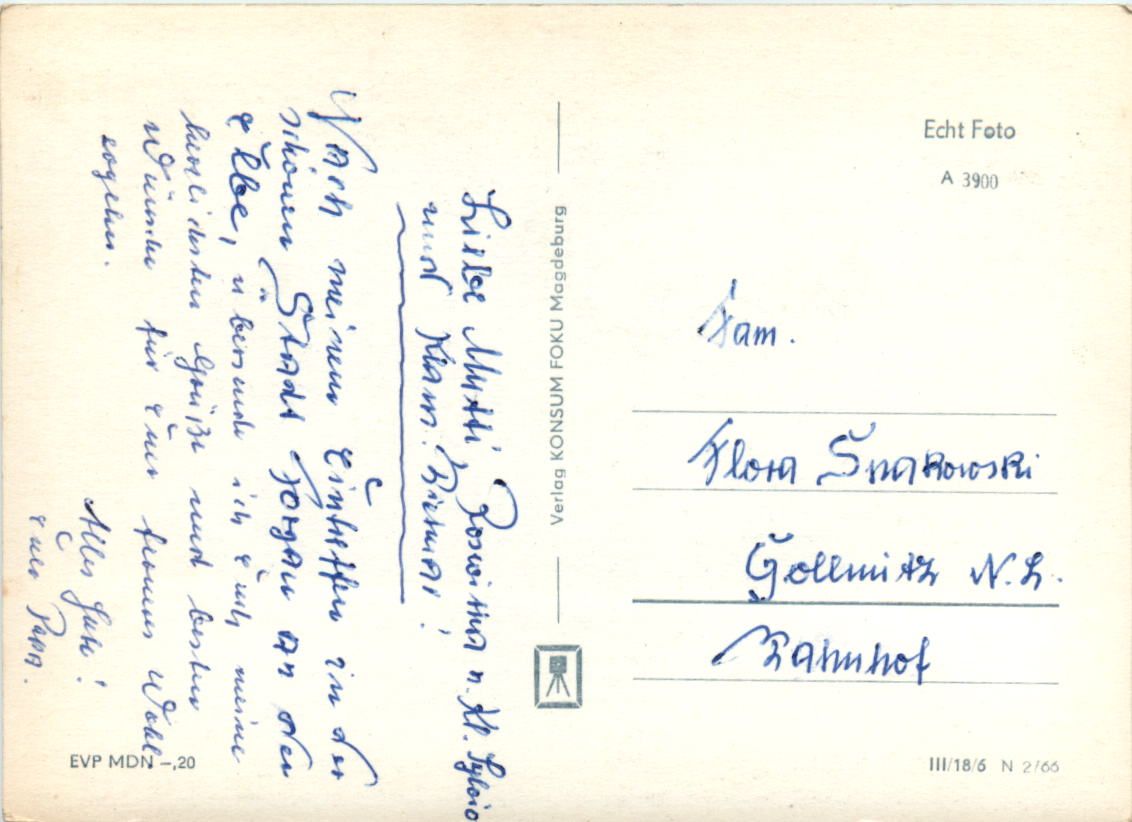 Liebe Mutti, Roswitha u. Kl. Sylvio
und Klaus-Dietmar!
Nach meinem Eintreffen in der
schönen Stadt Torgau an der
Elbe, übersende ich Euch meine
herzlichsten Grüße und besten
Wünsche für Euer ferneres Wohl-
ergehen.
Alles Gute!
Euer Papa.
Verlag KONSUM FOKU Magdeburg
EVP MDN –,20
Echt Foto
A 3900
Fam.
Flora
Gollmitz N.L.
Bahnhof
III/18/6 N 2/66